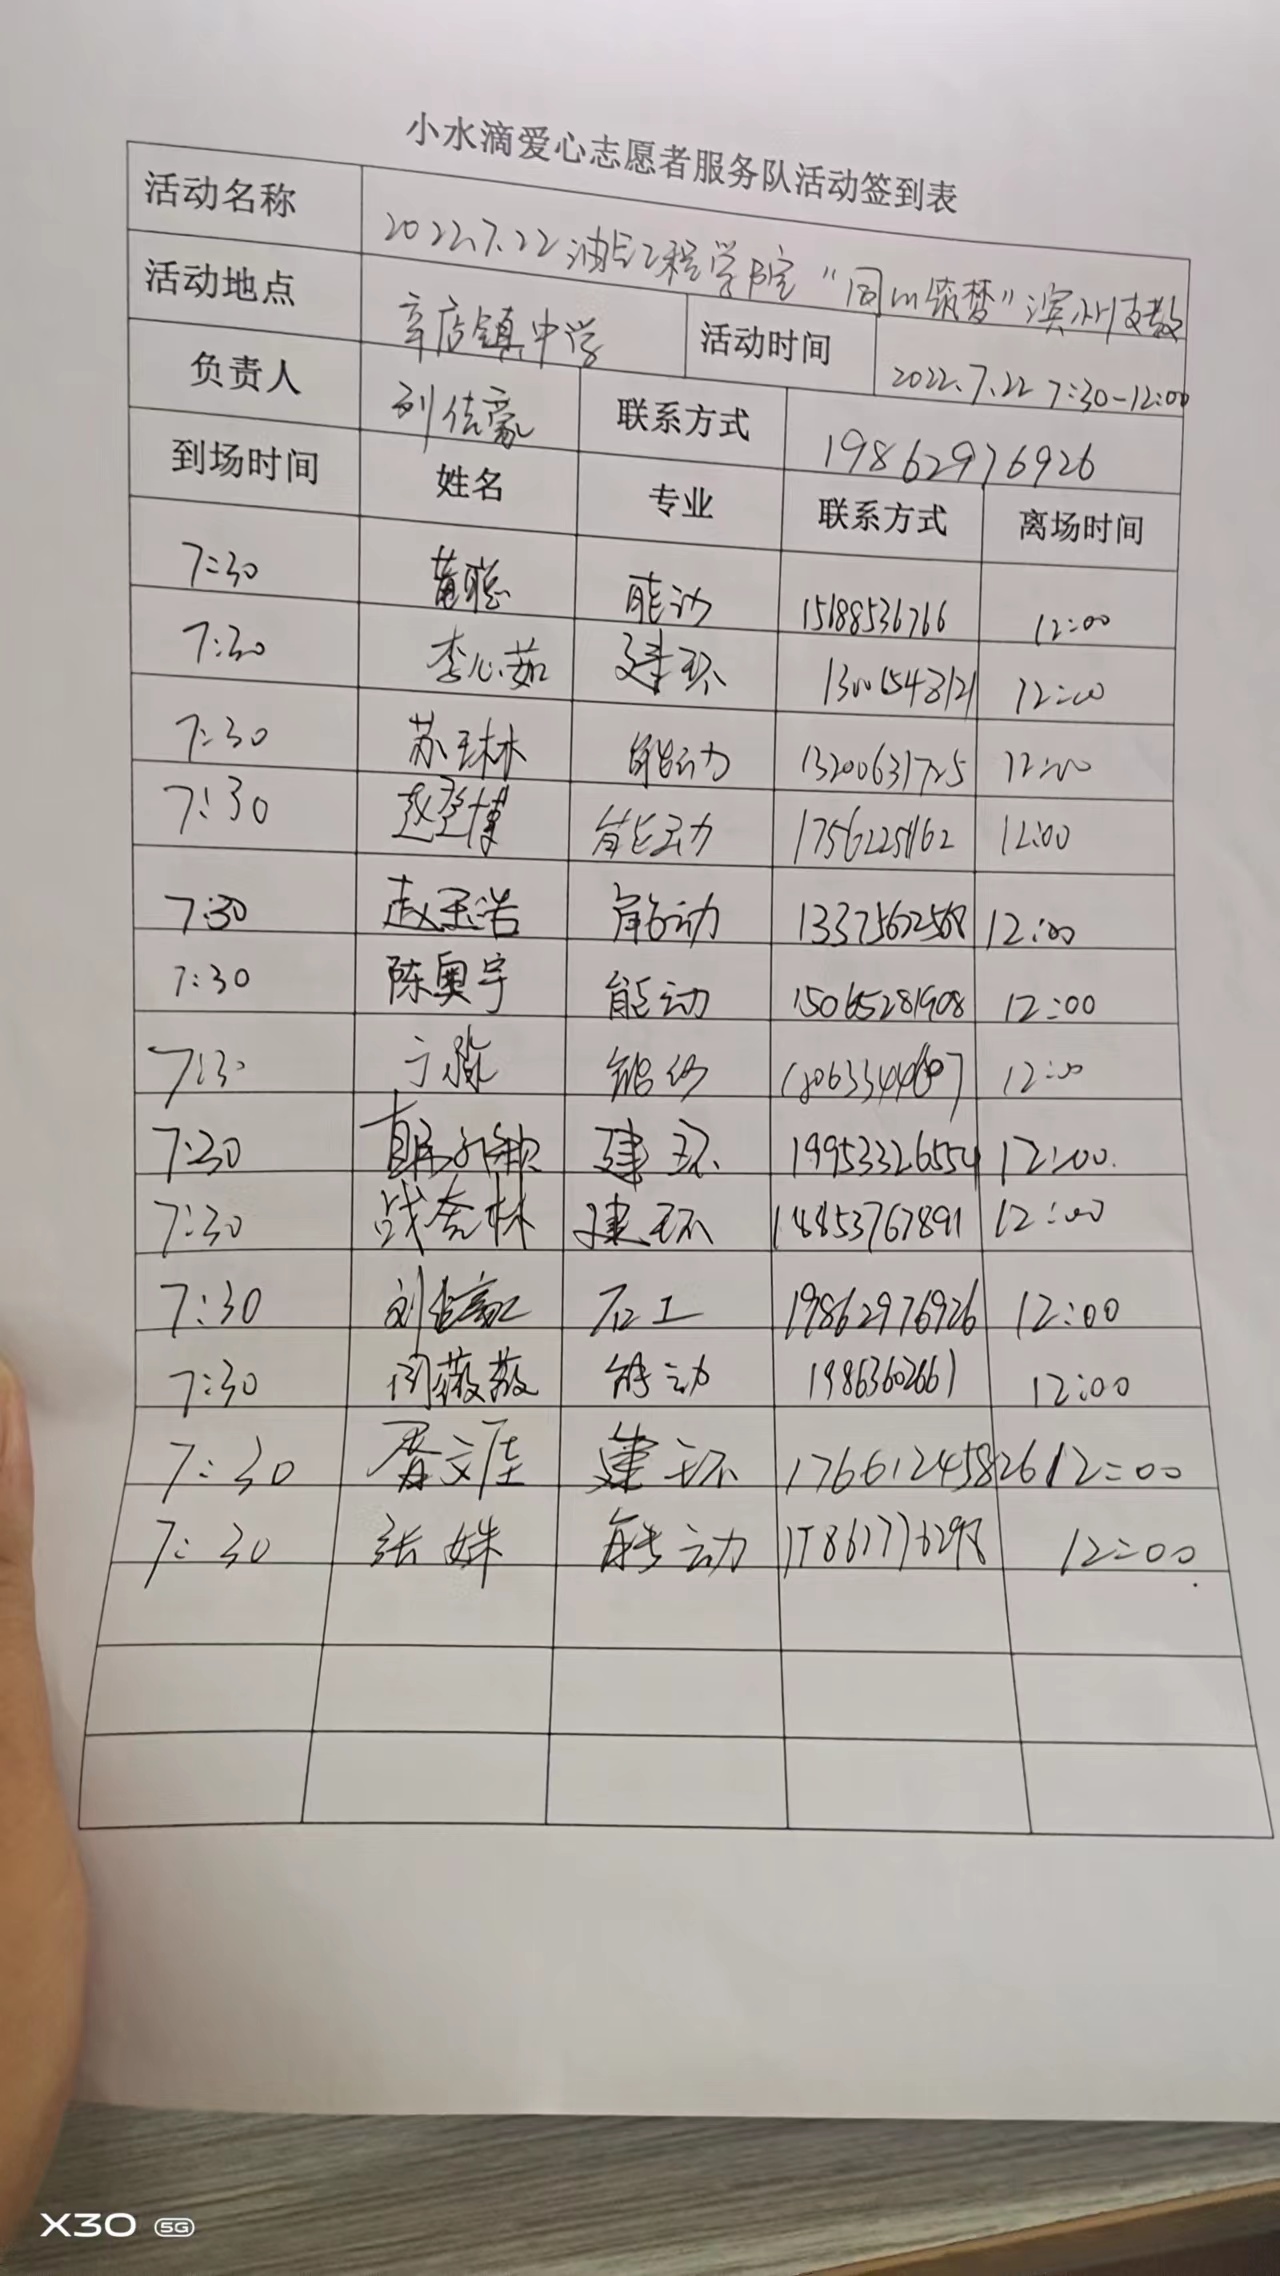 小水滴爱心志愿者服务队活动签到表
活动名称 2022.7.22 油气工程学院“同心筑梦”滨州支教
活动地点 辛店镇中学 活动时间 2022.7.22 7:30-12:00
负责人 刘佳豪 联系方式 19862976926
到场时间 姓名 专业 联系方式 离场时间
7:30 黄聪 能动 15188536766 12:00
7:30 李心茹 建环 13001548121 12:00
7:30 苏琳 能动 13200631725 12:00
7:30 赵博 能动 12:00
7:30 赵玉浩 能动 12:00
7:30 陈奥宇 能动 15065281908 12:00
7:30 于 能动 12:00
7:30 建环 19953326554 12:00
7:30 战奎林 建环 18853767891 12:00
7:30 刘佳豪 石工 19862976926 12:00
7:30 闫薇薇 能动 19863602661 12:00
7:30 文 建环 17661245826 12:00
7:30 张姝 能动 12:00
X30 5G